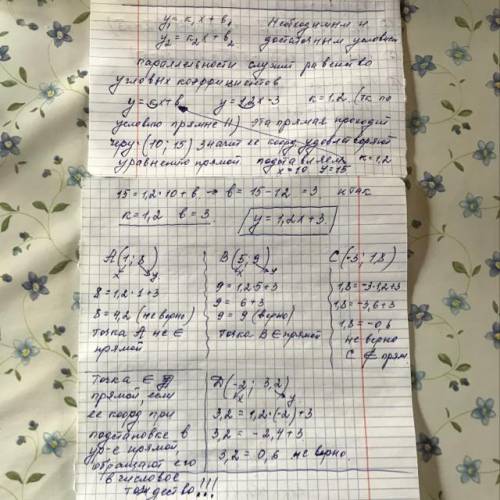 y₁ = k₁x + b₁ Необходимым и
y₂ = k₂x + b₂ достаточным условием
параллельности служит равенство
угловых коэффициентов
y = kx+b y = 1,2x-3 k=1,2. (тк по
условию прямые ||) эта прямая проходит
чеРз (10; 15) значит её коорд удовлетворяют
уравнению прямой подставляем k=1,2
x=10 y=15
15 = 1,2·10 + b → b = 15-12 = 3 итак
k = 1,2 b = 3. y = 1,2x+3
A(1; 8)
x y
8 = 1,2·1+3
8 = 4,2 (неверно)
точка A не ∈
прямой
B(5; 9)
x y
9 = 1,2·5+3
9 = 6+3
9 = 9 (верно)
точка B ∈ прямой
C(-3; 1,8)
1,8 = -3·1,2+3
1,8 = -3,6+3
1,8 = -0,6
не верно
C ∉ прям
Точка ∈
прямой если
её коорд при
подстановке в
ур-е прямой
обращают его
в числовое
тождество!!!
D(-2; 3,2)
x y
3,2 = 1,2·(-2)+3
3,2 = -2,4+3
3,2 = 0,6 неверно.